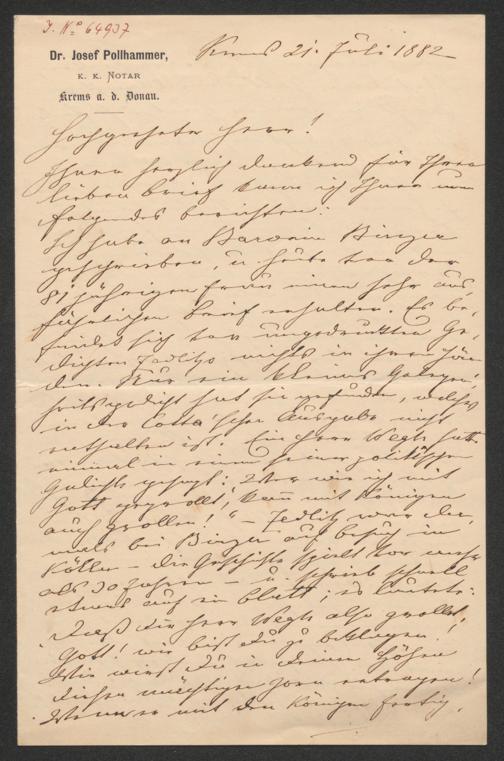 J. Nº 64937
Dr. Josef Pollhammer,
K. K. NOTAR
Krems a. d. Donau.
Krems 21. Juli 1882
Hochgeehrter Herr!
Ihnen herzlich dankend für Ihren
lieben Brief kann ich Ihnen nun
folgendes berichten:
Ich habe an Baronin Binzer
geschrieben, u heute von der
81 jährigen Frau einen sehr aus
führlichen Brief erhalten. Es be-
findet sich von ungedruckten Ge-
dichten Zedlitz nichts in ihren Hän
den. Nur ein kleines Gelegen-
heitsgedicht hat sie gefunden, welches
in der Cotta'schen Ausgabe nicht
enthalten ist. Ein Herr Wegh hatte
einmal in einem seiner politischen
Gedichte gesagt: Wer wie ich mit
Gott gegrollt, kann mit Königen
auch grollen!" – Zedlitz war da-
mals bei Binzer auf Besuch in
– die Geschichte spielt vor mehr
als 30 Jahren – u. schrieb schnell
etwas auf ein Blatt; es lautete:
Daß Herr Wegh also grollet,
Gott! wie bist Du zu beklagen!
Wie wirst Du in Deinen Höhen
diesen mächtigen Zorn ertragen!
Wenn er mit den Königen fertig,